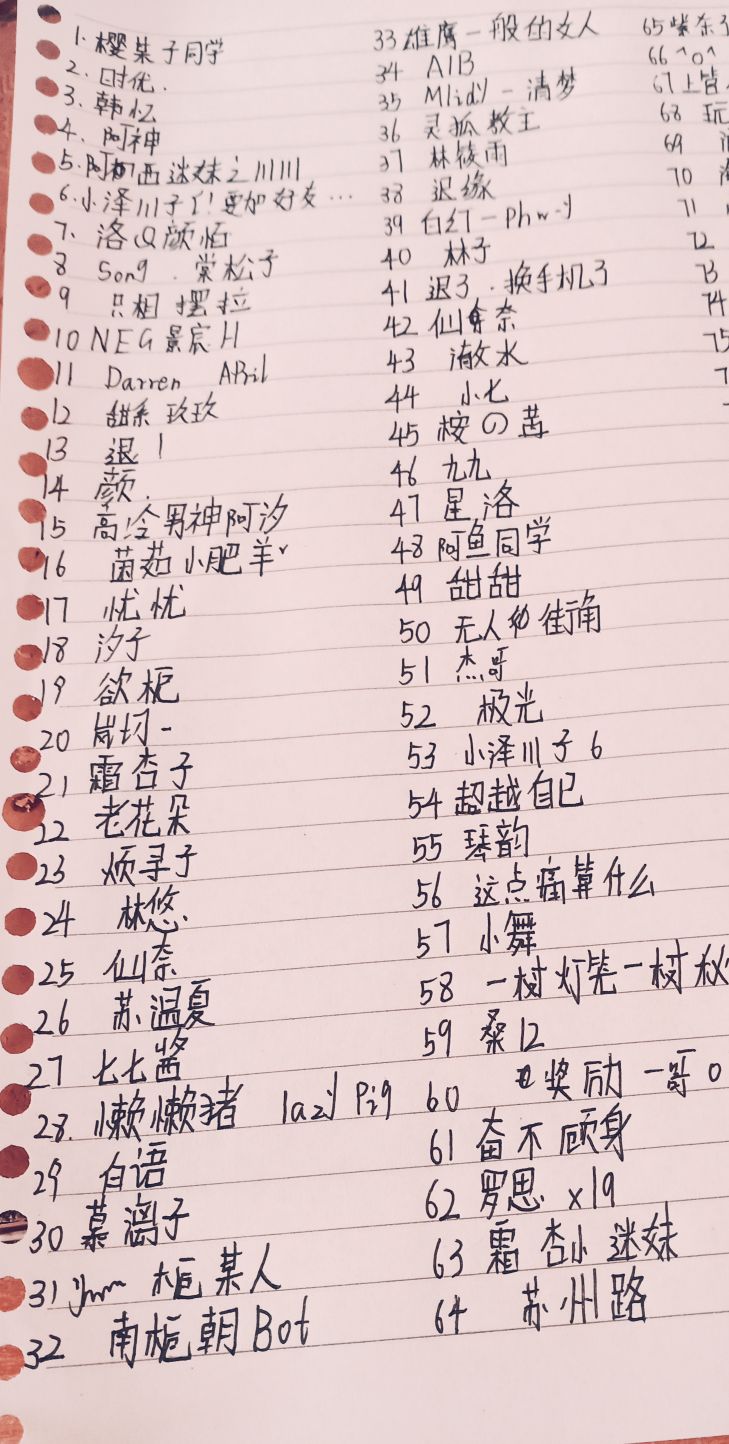 1. 樱菜子同学
2. 时优.
3. 韩忆
4. 阿神
5. 阿柯西迷妹之川川
6. 小泽川子了!要加好友…
7. 洛Q颜恬
8 Song . 棠松子
9 只相摆拉
10 NEG 景宸 H
11 Darren ABril
12 甜系 玖玖
13 退!
14 颜.
15 高冷男神阿汐
16 茵茹小肥羊
17 忧忧
18 汐子
19 欲栀
20 切-
21 霜杏子
22 老花朵
23 烦寻子
24 林悠.
25 仙奈
26 苏温夏
27 七七酱
28. 懒懒猪 lazy Pig
29 白语
30 慕漓子
31 栀某人
32 南栀朝Bot
33 雄鹰一般的女人
34 AIB
35 Mlidy - 清梦
36 灵狐教主
37 林筱雨
38 退缘
39 白幻-Phw-y
40 林子
41 退了.换手机了
42 仙奈
43 澈水
44 小七
45 桉の茜
46 九九
47 星洛
48 阿鱼同学
49 甜甜
50 无人的街角
51 杰哥
52 极光
53 小泽川子6
54 超越自己
55 琴韵
56 这点痛算什么
57 小舞
58 一树灯笼一树秋
59 桑12
60 奖励一哥0
61 奋不顾身
62 罗思 x19
63 霜杏小迷妹
64 苏州路
65 紫东
66 ^0^
67 上皆
68 玩
69
70
71
72
73
74
75
7